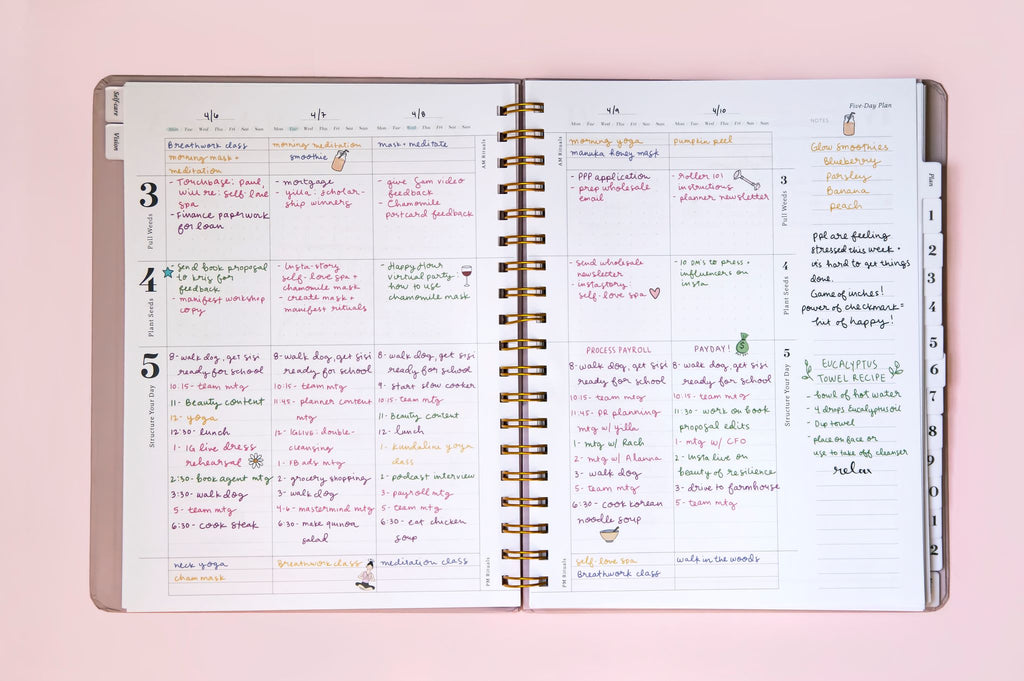 Selfcare
Vision
4/6
4/7
4/8
Mon Tue Wed Thu Fri Sat Sun
Mon Tue Wed Thu Fri Sat Sun
Mon Tue Wed Thu Fri Sat Sun
AM Rituals
Breathwork class
morning mask +
meditation
morning meditation
smoothie
mask + meditate
3
Pull Weeds
- Touchbase: Paul,
will re: self love
spa
- Finance paperwork
for loan
- mortgage
- yilla: scholar-
ship winners
- give Sam video
feedback
- Chamomile
postcard feedback
4
Plant Seeds
- Send book proposal
to kris for
feedback
- manifest workshop
copy
- Insta-story
self-love spa +
chamomile mask
- create mask +
manifest rituals
- Happy Hour
virtual party:
how to use
chamomile mask
5
Structure Your Day
8- walk dog, get sisi
ready for school
10:15- team mtg
11- Beauty content
12- yoga
12:30- lunch
1- IG live dress
rehearsal
2:30- book agent mtg
3:30- walk dog
5- team mtg
6:30- cook steak
8- walk dog, get sisi
ready for school
10:15- team mtg
11:45- planner content
mtg
12- IGLIVE: double-
cleansing
1- FB ads mtg
2- grocery shopping
3- walk dog
4-6- mastermind mtg
6:30- make quinoa
salad
8- walk dog, get sisi
ready for school
9- start slow cooker
10:15- team mtg
11- Beauty content
12- lunch
1- kundalini yoga
class
2- podcast interview
3- payroll mtg
5- team mtg
6:30- eat chicken
soup
PM Rituals
neck yoga
cham mask
Breathwork class
meditation class
4/9
4/10
Five-Day Plan
Mon Tue Wed Thu Fri Sat Sun
Mon Tue Wed Thu Fri Sat Sun
AM Rituals
morning yoga
manuka honey mask
pumpkin peel
3
Pull Weeds
- PPP application
- prep wholesale
email
- roller 101
instructions
- planner newsletter
4
Plant Seeds
- Send wholesale
newsletter
- instastory
self-love spa
- 10 DM's to press +
influencers on
insta
5
Structure Your Day
PROCESS PAYROLL
8- walk dog, get sisi
ready for school
10:15- team mtg
11:45- PR planning
mtg w/ yilla
1- mtg w/ Rach
2- mtg w/ Alanna
3- walk dog
5- team mtg
6:30- cook korean
noodle soup
PAYDAY!
8- walk dog, get sisi
ready for school
10:15- team mtg
11:30- work on book
proposal edits
1- mtg w/ CFO
2- insta live on
beauty of resilience
3- drive to farmhouse
5- team mtg
PM Rituals
self-love spa
Breathwork class
walk in the woods
NOTES
Glow smoothies
Blueberry
Parsley
Banana
peach
ppl are feeling
stressed this week +
it's hard to get things
done.
Game of inches!
power of checkmark =
hit of happy!
EUCALYPTUS
TOWEL RECIPE
- bowl of hot water
- 4 drops Eucalyptus oil
- Dip towel
- place on face or
use to take off cleanser
relax
Plan
1
2
3
4
5
6
7
8
9
0
1
2